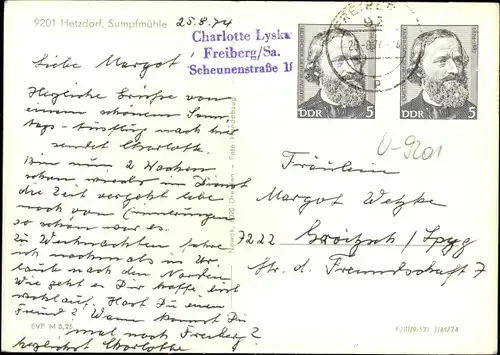 9201 Hetzdorf, Sumpfmühle
25.8.74
Charlotte Lyska
Freiberg/Sa.
Scheunenstraße 1
Liebe Margot!
Herzliche Grüße von
einem schönem Sonn
tags-Ausflug nach hier
sendet Charlotte.
Bin nun 2 Wochen
schon wieder im Dienst
die Zeit vergeht lebe
noch von Erinnerungen
so schön war es.
Zu Weihnachten fahre
ich nochmals in Ur
laub nach dem Norden
Wie geht es Dir hoffe bist
wohlauf. Hast Du einen
Freund? Wann kommst Du
mal nach Freiberg?
herzlichst Charlotte
EVP M 0,25
FREIBERG
92
DDR 5
DDR 5
0-9201
Fräulein
Margot Wetzke
7222 Groitzsch / Lpzg
Str. d. Freundschaft 7